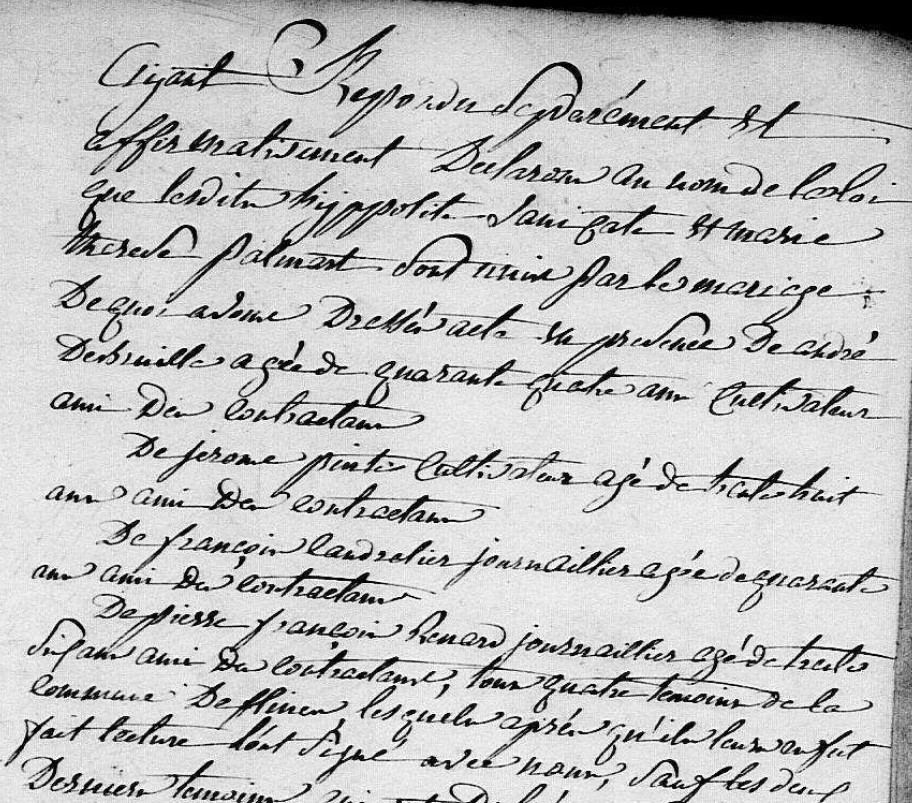 ayant Repondu Separément Et
affirmativement Declarons au nom de la loi
que lesdits hyppolite Et marie
therese palmart Sont unis par le mariage
De quoi avons Dressés acte en presence De andré
agée de quarante quatre ans Cultivateur
ami Des contractans
De jerome pinte Cultivateur agé de trente huit
ans ami Des contractans
De françois landrelier journaillier agée de quarante
ans ami Des contractans
De pierre françois Renard journaillier agé de trente
Six ans ami Des contractans, tous quatre temoins de la
commune De flinес lesquels aprés qu'ils leurs en fut
fait lecture l'ont Signé avec nous, Sauf les deux
Derniers temoins